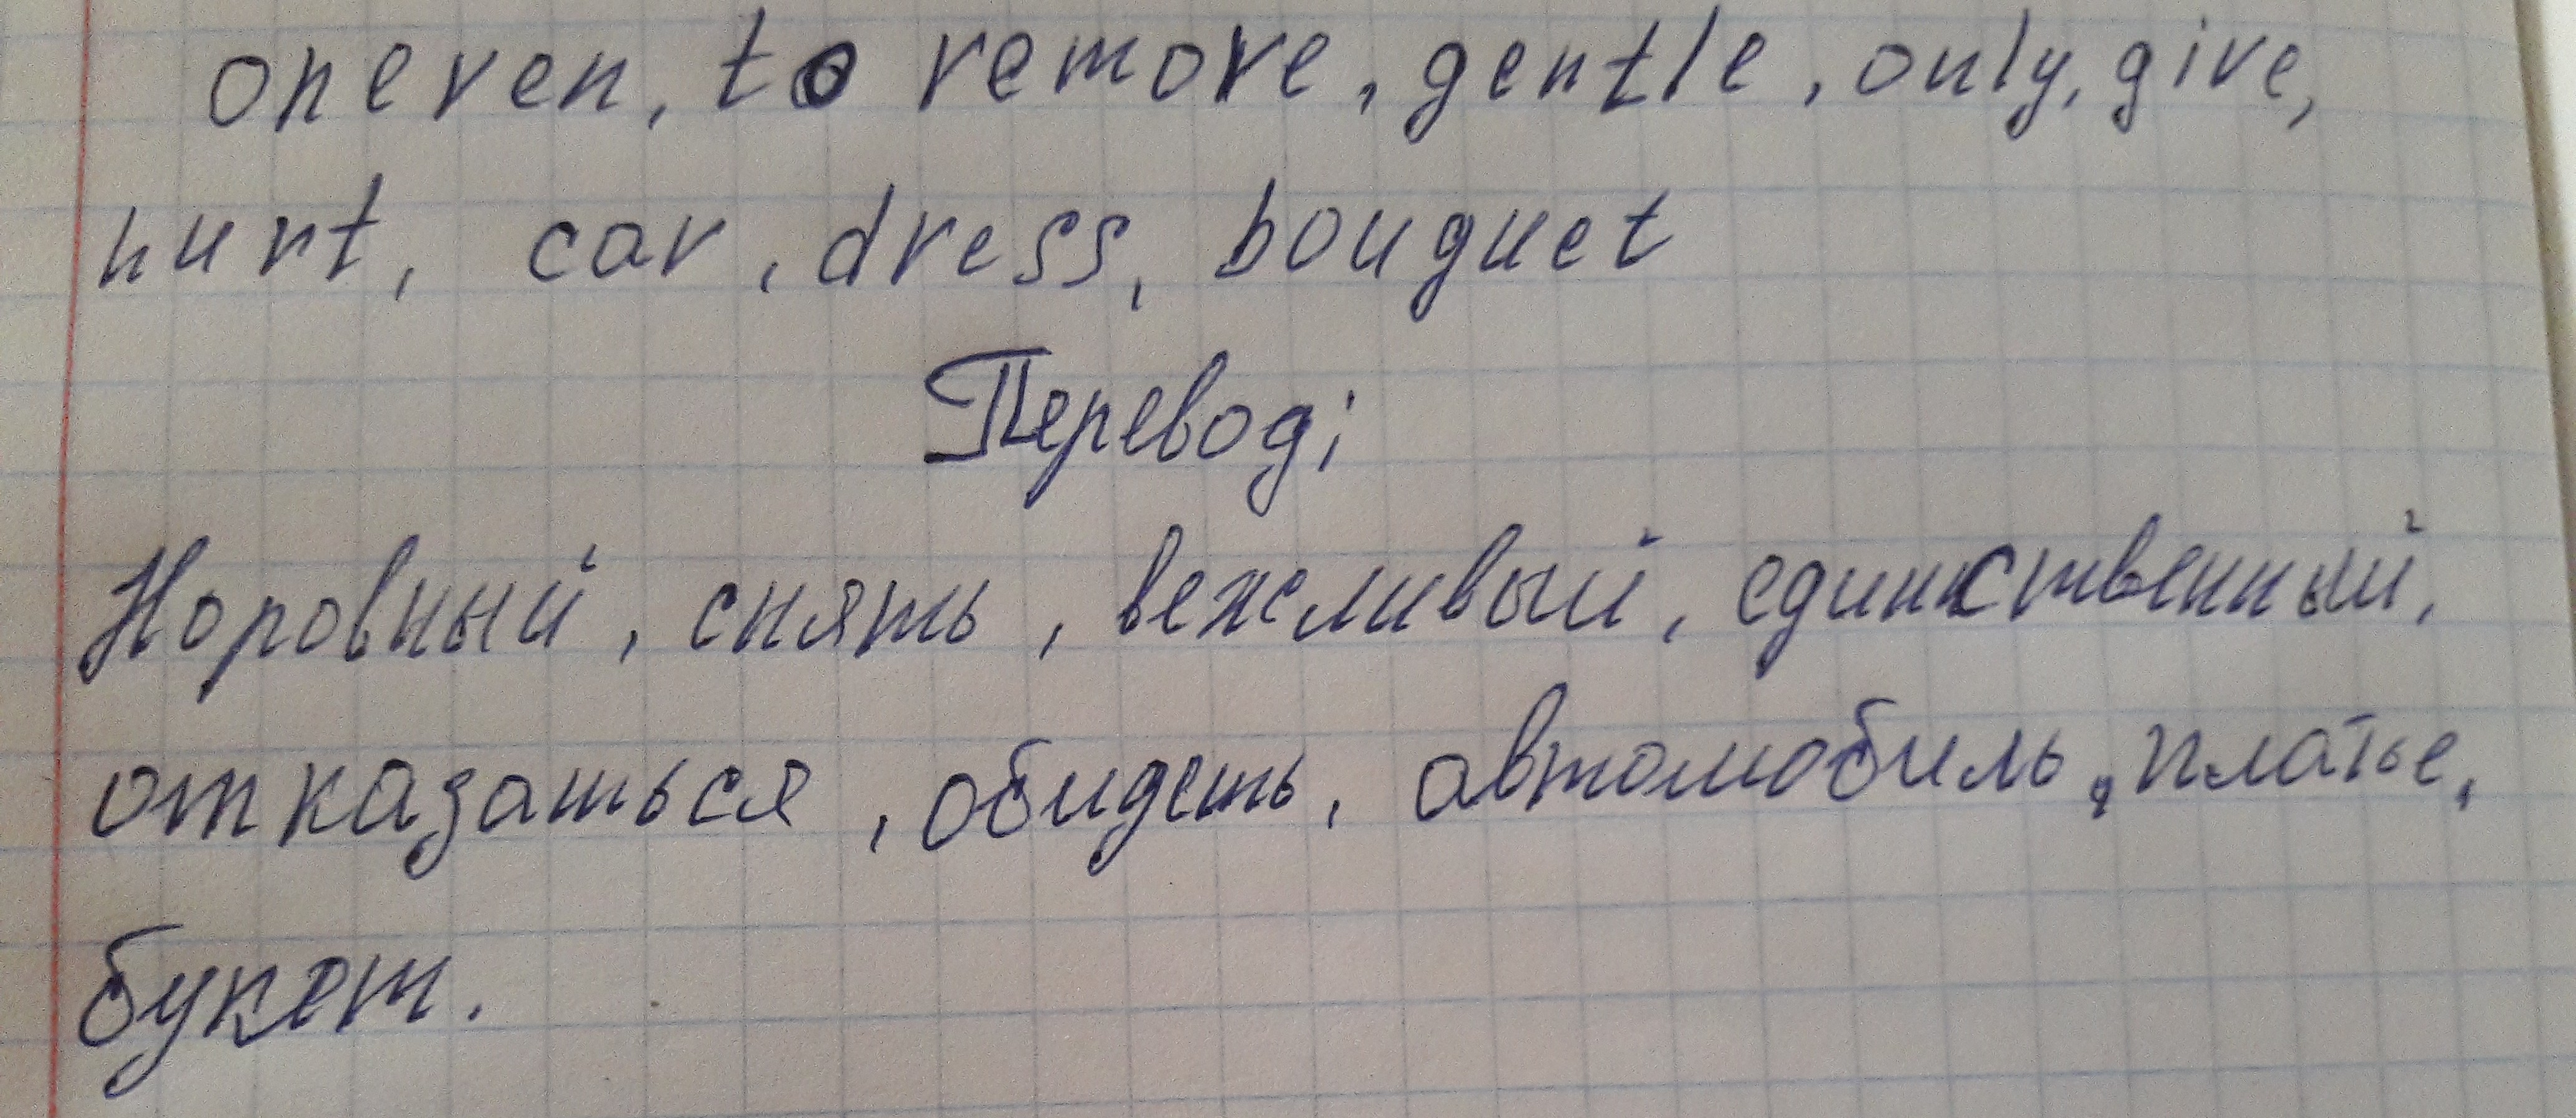 oneven, to remove, gentle, only, give,
hurt, car, dress, bouquet
Перевод;
Норовный, снять, вежливый, единственный,
отказаться, обидеть, автомобиль, платье,
букет.